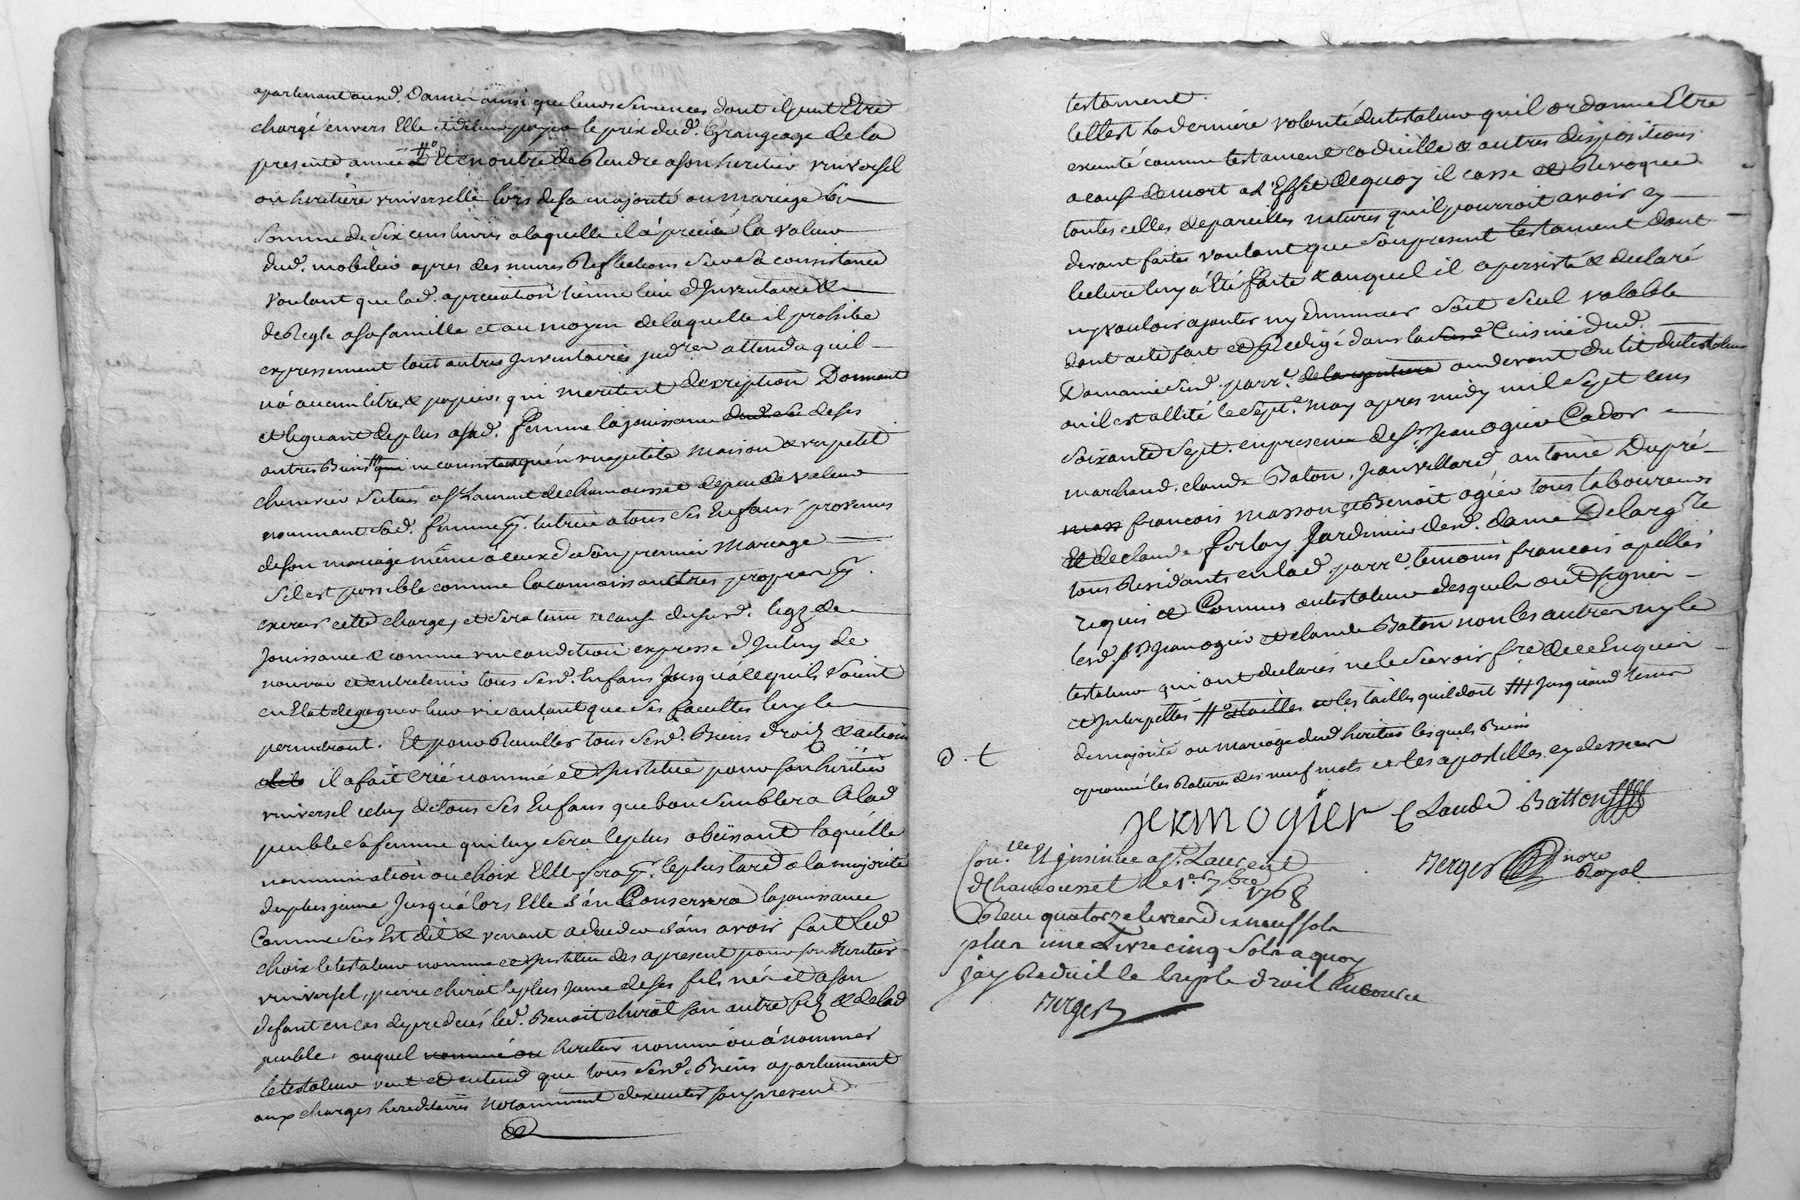 apartenant aux d. Damer ainsi que leurs semences dont il peut Etre
chargé envers Elle le prix dud. Grangeage de la
presente année Et en outre de Rendre a son heritier universel
ou heritiere universelle lors de sa majorité ou mariage la
somme de six cens livres a laquelle il à precié la valeur
dud. mobilier apres des mures Reflections sur sa consistance
voulant que lad. apretiation tienne lieu d'Inventaire &
de Regle a sa famille et au moyen de laquelle il prohibe
expressement tout autres Inventaires judres attendu qu'il
n'à aucun titre & papiers qui meritent description Donnant
et leguant de plus a sad. femme la jouissance de ses
autres Biens qui ne consistent qu'en une petite maison & un petit
chenevier situés a St Laurent de chamousset de peu de valeur
nommant sad. femme pr. tutrice a tous ses Enfans provenus
de son mariage même à ceux de son premier mariage
s'il est possible comme la connoissant tres propre pr.
exercer cette charge, et sera tenue a cause dususd. legz de
Jouissance & comme une condition expresse d'Iceluy de
nourrir et entretenir tous sesd. Enfans Jusqu'à ce qu'ils soient
en Etat de gagner leur vie autant que ses facultés luy le
permetront. Et pour Remettre tous sesd. Biens droitz & actions
il a fait créé nommé et Institué pour son heritier
universel celuy de tous ses Enfans que bon semblera a lad
peuble sa femme qui luy sera le plus obeissant laquelle
nomination ou choix Elle fera pr. le plus tard a la majorité
du plus jeune Jusqu'alors Elle s'en Conservera la jouissance
Comme sus Est dit & venant a deceder sans avoir fait led
choix le testateur nomme et Institue des apresent pour son heritier
universel, pierre chirat le plus jeune de ses fils né et a son
defaut en cas de predecés led. Benoit chirat son autre filz & de lad
peuble, auquel nommé ou heritier nommé ou à nommer
le testateur veut et entend que tous sesd. Biens apartiennent
aux charges hereditaires notamment d'executer son present
testament.
telle est la derniere volonté du testateur qu'il ordonne Etre
executé comme testament codicille & autres dispositions
a cause de mort a l'Effet de quoy il casse & Revoque
toutes celles de pareilles natures qu'il pourroit avoir cy
devant faites voulant que son present testament dont
lecture luy à été faite & auquel il a persisté & declaré
ny vouloir ajouter ny diminuer soit seul valable
dont acte fait et Redigé dans la Cuisine dud.
Domaine susd. parre. au devant du lit du testateur
ou il est allité le sept.e may apres midy mil sept cens
soixante sept. en presence de sr. Jean ogier Cador
marchand, claude Baton, jean villard, antoine Dupré
francois masson et Benoit ogier tous laboureurs
Et de claude ferlay Jardinier desd. dame Delarg.re
tous Residants en lad. parre. temoins francois apellés
requis & Connus du testateur desquels ont signé
lesd. sr. Jean ogier et claude Baton non les autres ny le
testateur qui ont declarés ne le scavoir fre. de ce Enquis
et Interpellés et les tailles qu'il doit Jusqu'aud. tems
de majorité ou mariage dud heritier lesquels Biens
aprouvé les Ratures des neuf mots et les apostilles cy dessus
D. t
jean ogier Claude Batton
Berger nore
Royal
Con.lle Et insinué a St. Laurent
de Chamousset le 1er 7bre 1768
Reçu quatorze livres dix neuf sols
plus une Livre cinq Sols a quoy
j'ay Reduit le triple droit Encouru
Berger